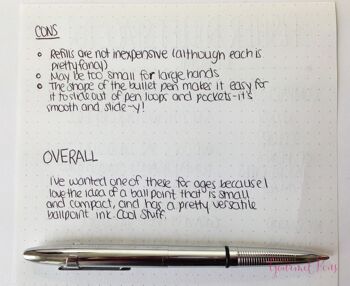 CONS
Refills are not inexpensive (although each is
pretty fancy)
May be too small for large hands
The shape of the bullet pen makes it easy for
it to slide out of pen loops and pockets - it's
smooth and slide-y!
OVERALL
I've wanted one of these for ages because I
love the idea of a ballpoint that is small
and compact, and has a pretty versatile
ballpoint ink. Cool stuff.
Gourmet Pens